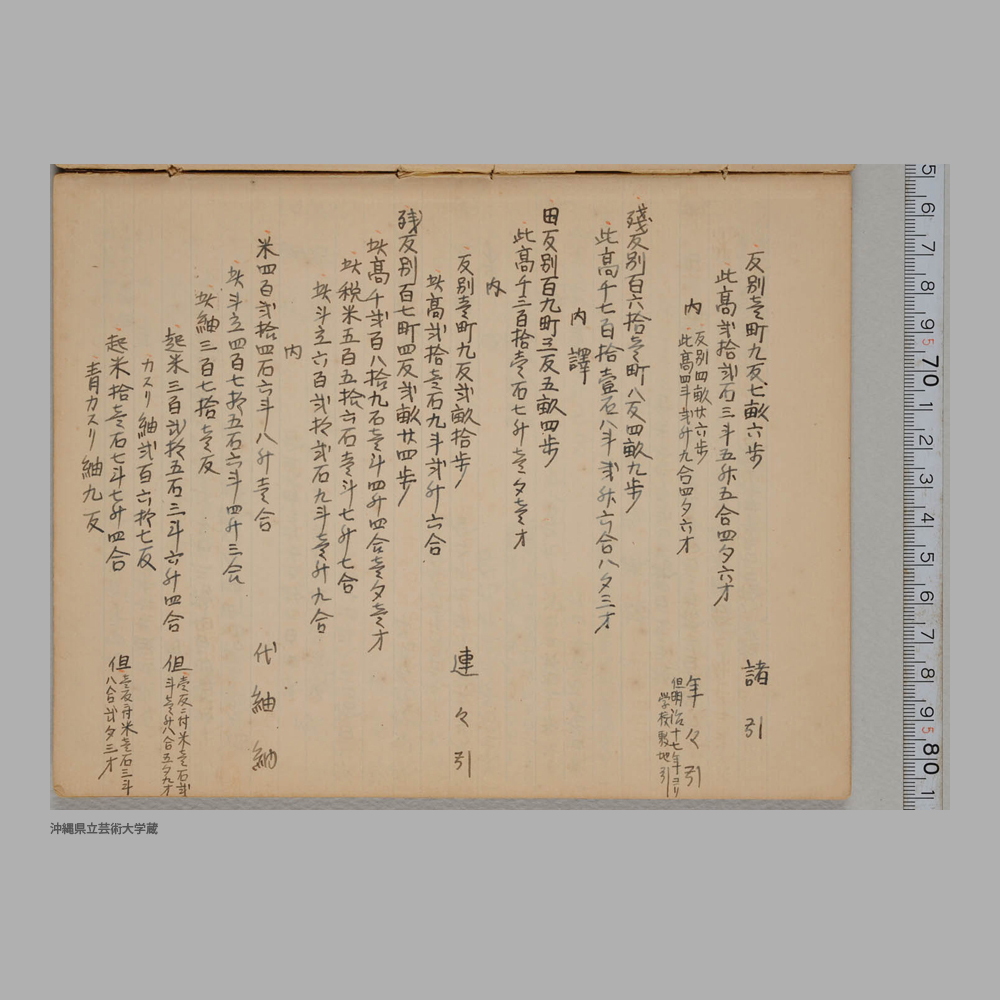 反別壱町九反七畝六歩 諸引
此高弐拾弐石三斗五升五合四夕六才
内 反別四畝廿六歩 年々引
此高四斗弐升九合四夕六才 但明治十七年ヨリ
学校敷地引
残反別百六拾壱町八反四畝九歩
此高千七百拾壹石八斗弐升六合八夕三才
内譯
田反別百九町三反五畝四歩
此高千三百拾壱石七升壱夕壱才
内
反別壱町九反弐畝拾歩 連々引
此高弐拾壱石九斗弐升六合
残反別百七町四反弐畝廿四歩
此高千弐百八拾九石壱斗四升四合壱夕壱才
此税米五百五拾六石壱斗七升七合
此斗立六百弐拾弐石九斗壱升九合
内
米四百弐拾四石六斗八升壱合 代紬納
此斗立四百七拾五石六斗四升三合
此紬三百七拾壱反
起米三百弐拾五石三斗六升四合 但壱反ニ付米壱石弐
斗壱升八合五夕九才
カスリ紬弐百六拾七反
起米拾壱石七斗七升四合 但壱反ニ付米壱石三斗
八合弐夕三才
青カスリ紬九反
5 6 7 8 9 70 1 2 3 4 5 6 7 8 9 80 1
沖縄県立芸術大学蔵